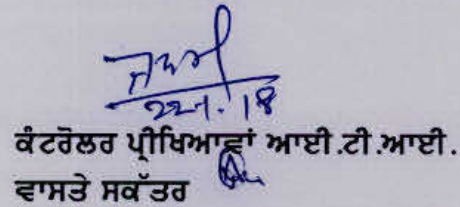 22-1-18
ਕੰਟਰੋਲਰ ਪ੍ਰੀਖਿਆਵਾਂ ਆਈ.ਟੀ.ਆਈ.
ਵਾਸਤੇ ਸਕੱਤਰ